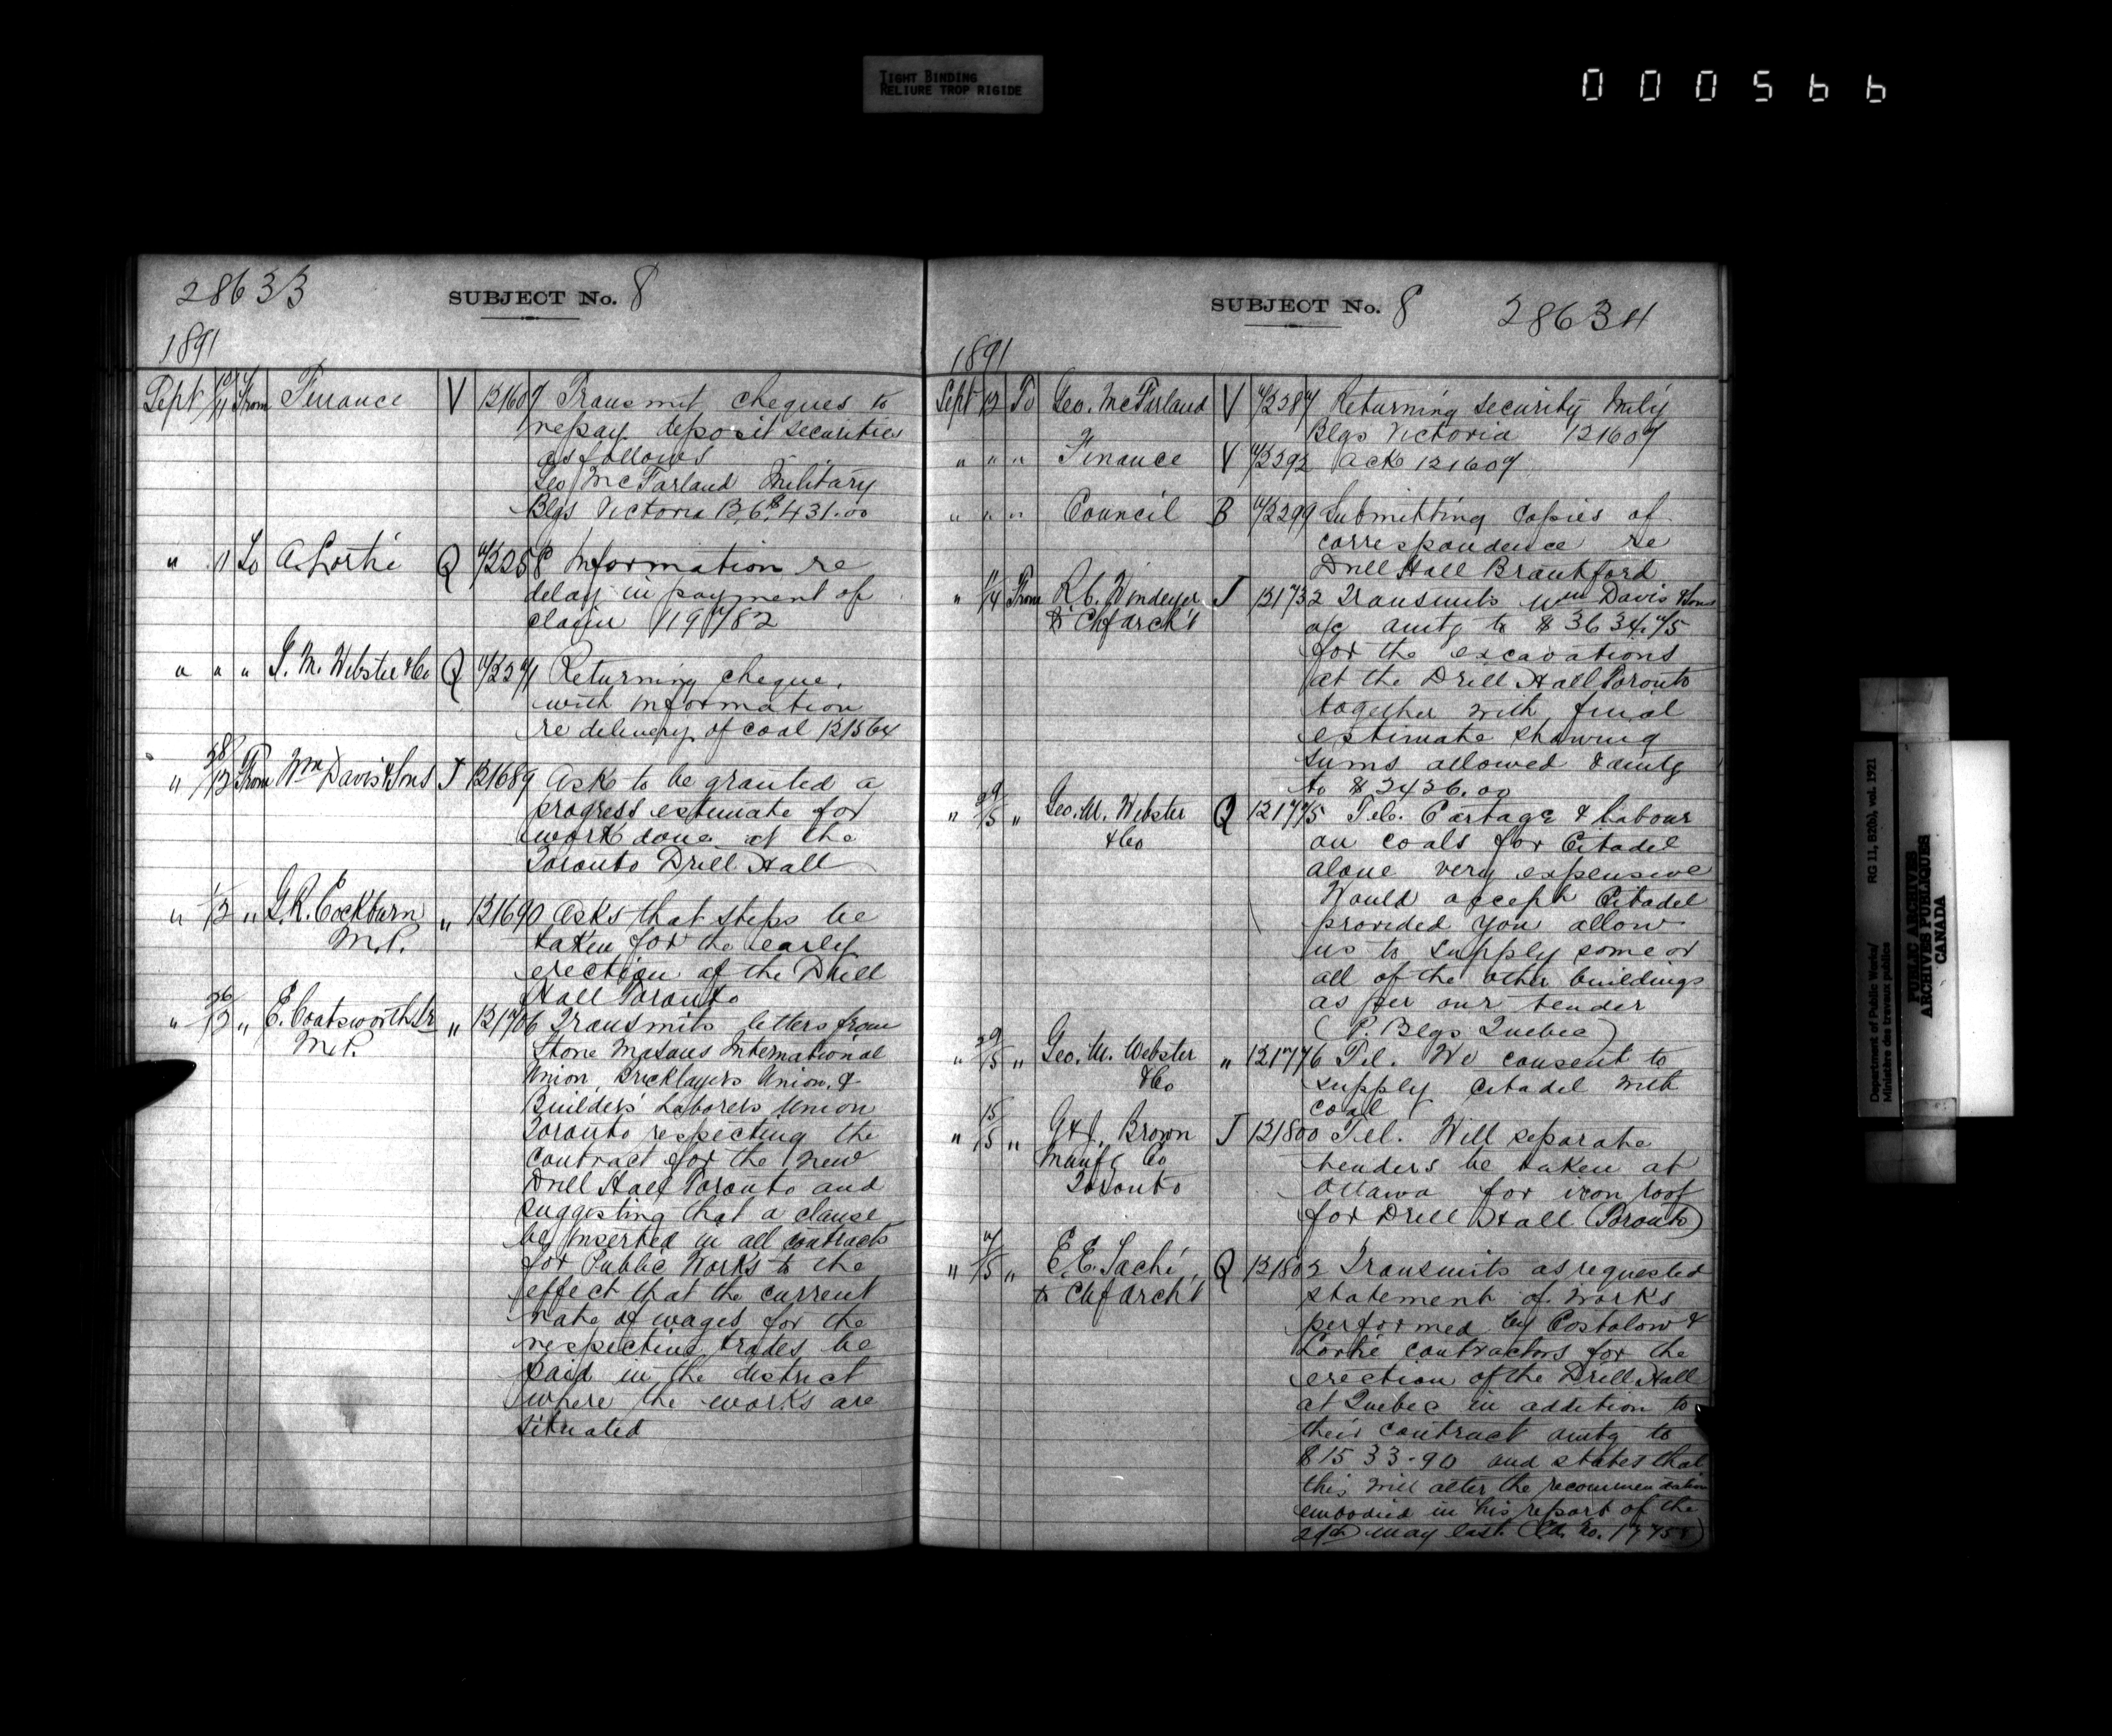 TIGHT BINDING
RELIURE TROP RIGIDE
000566
28633
SUBJECT No. 8
1891
Sept 10/11 From Finance V 121607 Transmit cheques to
repay deposit securities
as follows
Geo McFarland Military
Blgs Victoria B.C. $431.00
" 11 To A. Lortie Q 72258 Information re
delay in payment of
claim 119782
" " " G. M. Webster & Co Q 72271 Returning cheque,
with information
re delivery of coal 121564
" 28/12 From Wm Davis & Sons J 121689 Ask to be granted a
progress estimate for
work done at the
Toronto Drill Hall
" 1/12 " G. R. Cockburn " 121690 Asks that steps be
M.P. taken for the early
erection of the Drill
Hall Toronto
" 26/12 " E. Coatsworth Jr " 121706 Transmits letters from
M.P. Stone Masons International
Union, Bricklayers Union, &
Builders' Laborers Union
Toronto respecting the
contract for the new
Drill Hall Toronto and
suggesting that a clause
be inserted in all contracts
for Public Works to the
effect that the current
rate of wages for the
respective trades be
paid in the district
where the works are
situated
SUBJECT No. 8
28634
1891
Sept 12 To Geo. McFarland V 72287 Returning security Mily
Blgs Victoria 121607
" " " Finance V 72292 Ack 121607
" " " Council B 72299 Submitting copies of
correspondence re
Drill Hall Brantford
" 11/14 From R. C. Windeyer J 121732 Transmits Wm Davis & Sons
to Chf Arch't a/c amtg to $3634.75
for the excavations
at the Drill Hall Toronto
together with final
estimate showing
sums allowed & amtg
to $2426.00
" 29/15 " Geo. M. Webster Q 121775 Tel. Cartage & labour
& Co on coals for Citadel
alone very expensive
Would accept Citadel
provided you allow
us to supply some or
all of the other buildings
as per our tender
(P. Blgs Quebec)
" 29/15 " Geo. M. Webster " 121776 Tel. We consent to
& Co supply Citadel with
coal
" 15/15 " G & J. Brown J 121800 Tel. Will separate
Manfg Co tenders be taken at
Toronto Ottawa for iron roof
for Drill Hall (Toronto)
" 7/15 " E. E. Taché, Q 121802 Transmits as requested
to Chf Arch't statement of works
performed by Costolow &
Lortie contractors for the
erection of the Drill Hall
at Quebec in addition to
their contract amtg to
$1533.90 and states that
this will alter the recommendation
embodied in his report of the
May last
Department of Public Works/ RG 11, B2(b), vol. 1921
Ministère des travaux publics
PUBLIC ARCHIVES
ARCHIVES PUBLIQUES
CANADA